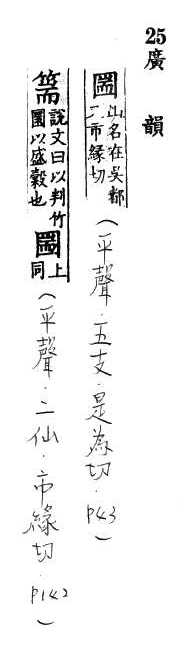 25廣韻
圌山名在吳都二市緣切（平聲．五支．是為切．P43）
篅說文曰以判竹圜以盛穀也圌上同（平聲．二仙．市緣切．P142）